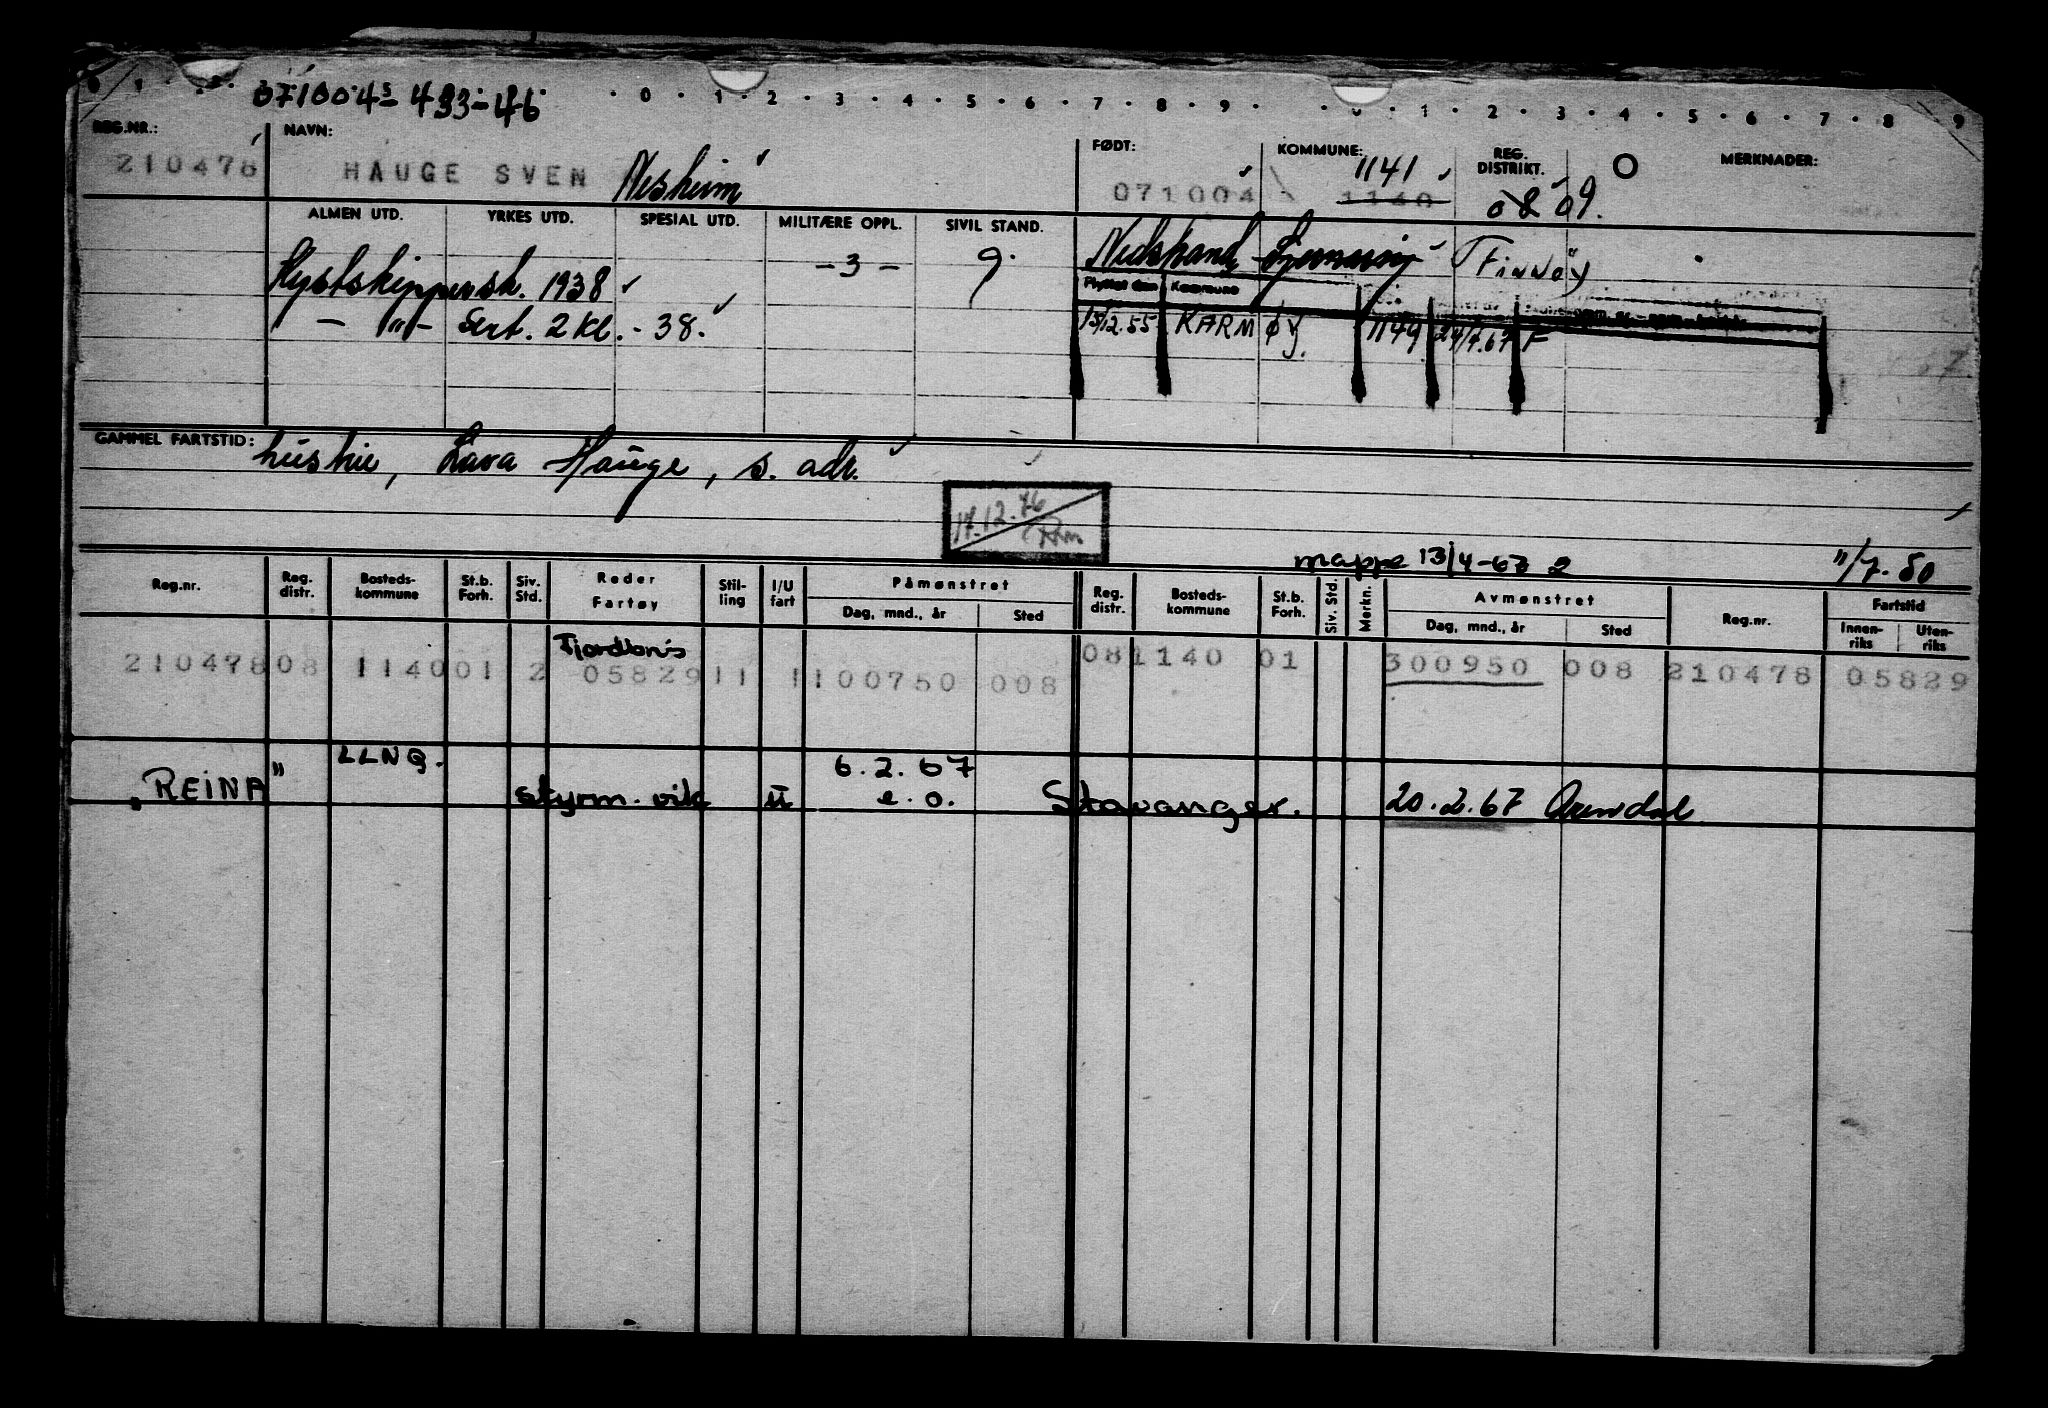 0 1 2 0 1 2 3 4 5 6 7 8 9 0 1 2 3 4 5 6 7 8 9
071004 - 433-46
REG.NR.: NAVN: FØDT: KOMMUNE: REG. DISTRIKT. MERKNADER:
210478 HAUGE SVEN 071004 1140 1141 08 09.
ALMEN UTD. YRKES UTD. SPESIAL UTD. MILITÆRE OPPL. SIVIL STAND.
- 3 - g. Nedstrand (Finnøy)
Kystskippersk. 1938
Flyttet den Kommune
- " - Sert. 2 kl. - 38.
15/12.55 KARMØY. 1149 F
GAMMEL FARTSTID: hustru, Lava Hauge, s. adr.
17.12.76
mappe 13/4-67 2 "/7.50
Reg.nr. Reg. distr. Bosteds- kommune St.b. Forh. Siv. Std. Reder Fartøy Stil- ling I/U fart Påmønstret Dag, mnd., år Sted Reg. distr. Bosteds- kommune St.b. Forh. Siv. Std. Merkn. Avmønstret Dag, mnd., år Sted Reg.nr. Fartstid Innen- riks Uten- riks
210478 08 1140 01 2 05829 11 1 100750 008 08 1140 01 300950 008 210478 05829
"REINA" LLNQ. styrm. vik u 6.2.67 e.o. Stavanger. 20.2.67 Arendal